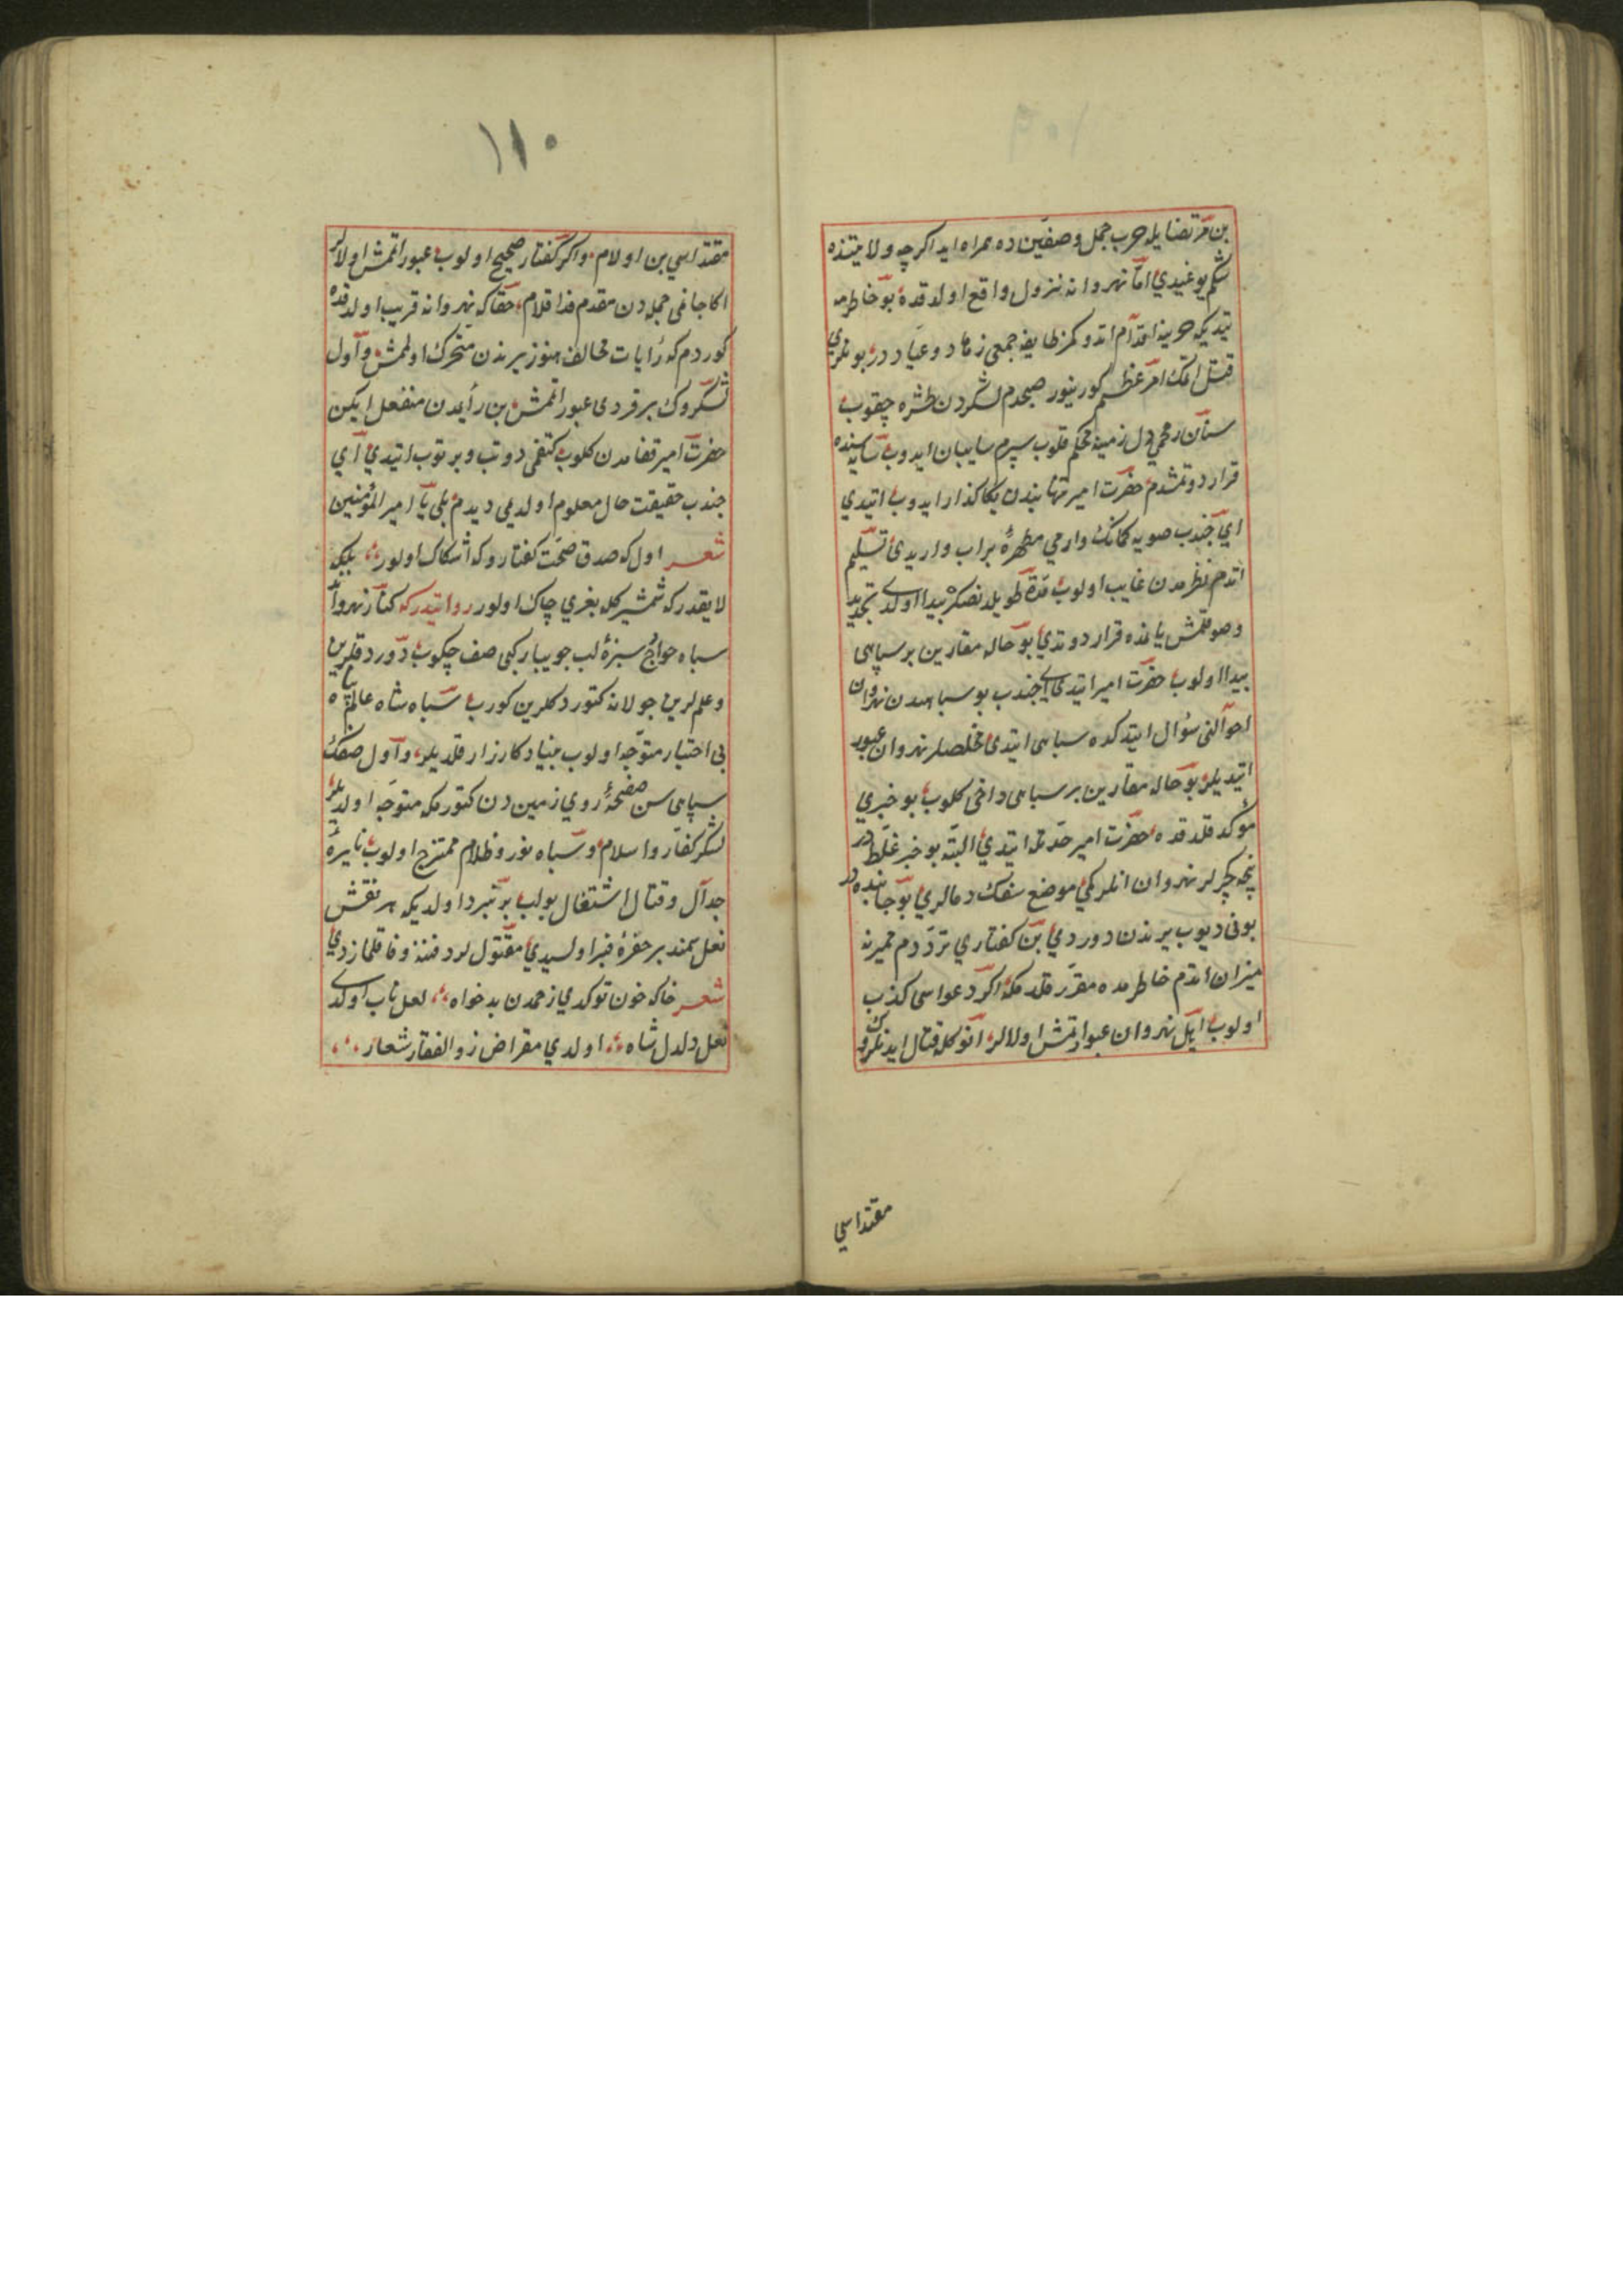 ١٠٩
بن مرتضایله حرب جمل وصفین ده همراه ایدم اکرچه ولایتنده
شکم یوغیدی امّا نهروانه نزول واقع اولدقده بو خاطرمه
یتدیکه حربنه اقدام اتدوکمز طایفه جمعی زهاد وعبّاد در بونلری
قتل اتمک امر عظیم کورینور صبحدم لشکردن طشره چقوب
سنان رمحمی دل زمینه محکم قلوب سپرم سایبان ایدوب سایه‌سنده
قرار دوتمشدم حضرت امیر تنها بندن یکا کذار ایدوب اتیدی
ای جندب صویه کمانک وارمی مطهرهٔ پر اب واریدی تسلیم
اتدم نظرمدن غایب اولوب مدّة طویله‌دنصکره پیدا اولدی تجدید
وضو قلمش یانمده قرار دوتدی بو حاله مقارین بر سپاهی
پیدا اولوب حضرت امیر اتیدی ای جندب بو سباهیدن نهروان
احوالنی سؤال ایتدکده سباهی ایتدی مخلصلر نهروان عبور
اتیدیلر بو حاله مقارین بر سباهی داخی کلوب بو خبری
مؤکد قلدقده حضرت امیر حدتله ایتدی البتّه بو خبر غلطدر
نیجه چکرلر نهروان انلرکی موضع سفک دمالری بو جانبده‌در
بونی دیوب یرندن دوردی بن کفتاری تردّدم ضمیرنه
میزان اتدم خاطرمده مقرّر قلدمکه اکر دعواسی کذب
اولوب ایل نهروان عبور اتمش اولالر انوکله قتال ایدنلروک
مقتداسی
١١٠
مقتداسی بن اولام واکر کفتار صحیح اولوب عبور اتمش اولالر
اکا جانمی جمله‌دن مقدم فدا قلام حقاکه نهروانه قریب اولدقده
کوردم که رایات مخالف هنوز یرندن متحرک اولمش واول
لشکروک بر فردی عبور اتمش بن رأیمدن منفعل ایکن
حضرت امیر قفامدن کلوب کتفمی دوتب وبرتوب اتیدی ای
جندب حقیقت حال معلوم اولدیمی دیدم بلی یا امیر المؤمنین
شعر اول که صدق صحّت کفتاروکه اشکاک اولور بلکه
لایقدرکه شمشیرکله بغری چاک اولور روایتدرکه کنار نهروانده
سباه خوارج سبزهٔ لب جویبار کبی صف چکوب دورد قلرین
وعلملرین جولانه کتوردکلرین کورب سباه شاه عالم پناه
بی اختیار متوجّه اولوب بنیاد کارزار قلدیلر واول صفک
سپاهی سن صفحهٔ روی زمین دن کتورمکه متوجّه اولدیلر
لشکر کفّار واسلام وسباه نور وظلام ممتزج اولوب نایرهٔ
جدال وقتال اشتغال بولب بر نبرد اولدیکه هر نقش
نعل سمند بر حفرهٔ قبر اولسیدی مقتول لرد فننه وفا قلمازدی
شعر خاکه خون توکدی زخمدن بدخواه لعل ناب اولدی
نعل دلدل شاه اولدی مقراض ذو الفقار شعار